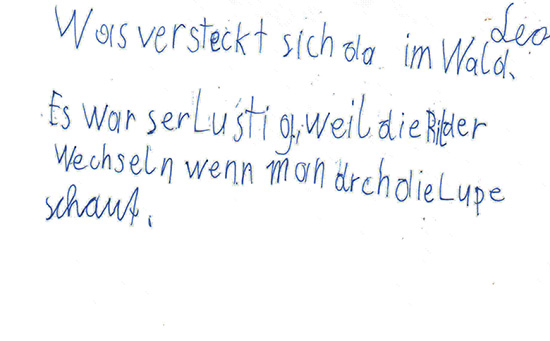 Leo
Was versteckt sich da im Wald.
Es war ser Lustig, weil die Bilder
Wechseln wenn man drch die Lupe
schaut.